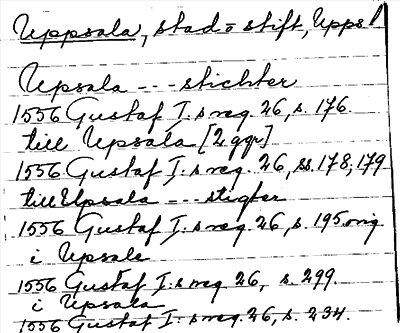 Uppsala, stad o stift, Upps l
Upsala --- stichter
1556 Gustaf I:s reg. 26, s. 176.
till Upsala [2 ggr]
1556 Gustaf I:s reg. 26, ss. 178, 179
till Upsala --- stigter
1556 Gustaf I:s reg. 26, s. 195 orig
i Upsale
1556 Gustaf I:s reg. 26, s. 299.
i Upsala
1556 Gustaf I:s reg. 26, s. 234.